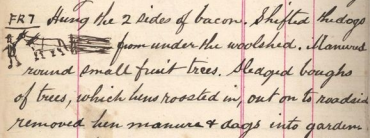 FR 7 Hung the 2 sides of bacon. Shifted the dogs
from under the woolshed. Manured
round small fruit trees. Sledged boughs
of trees, which hens roosted in, out on to roadside
removed hen manure & dags into garden